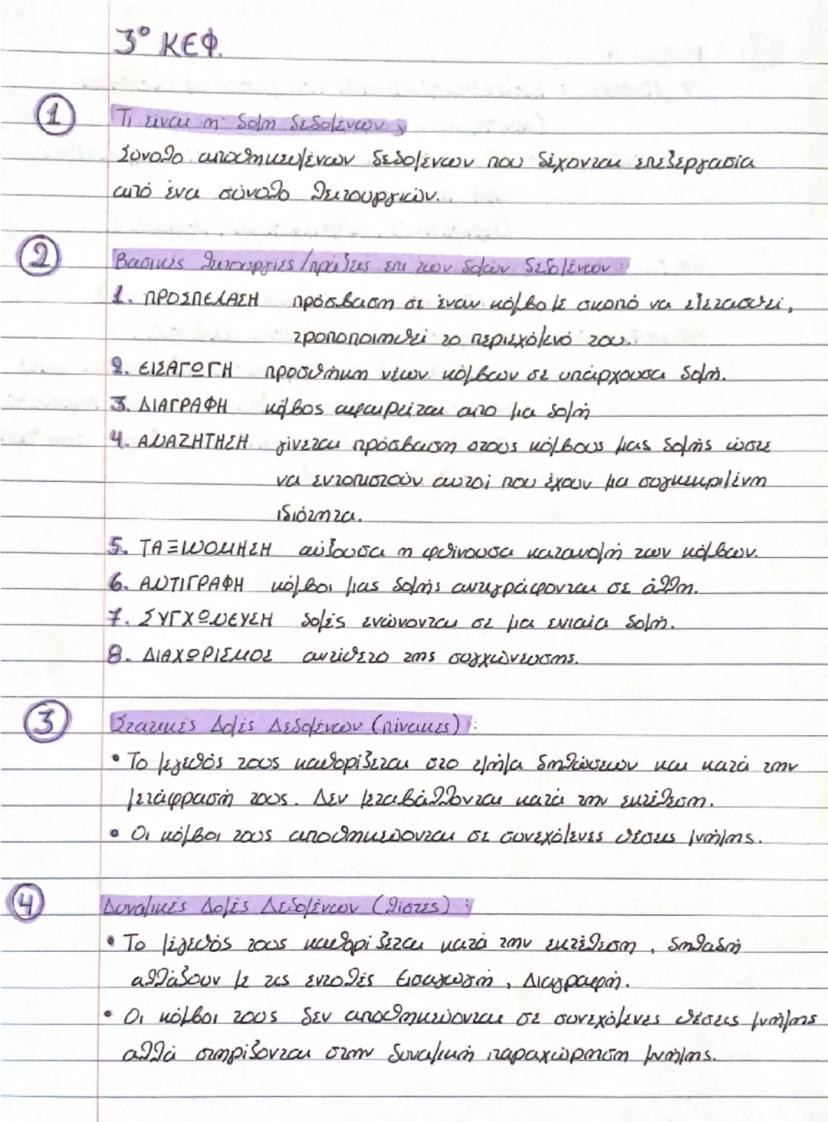 3° ΚΕΦ.
1 Τι είναι η δομή δεδομένων;
Σύνολο αποθηκευμένων δεδομένων που δέχονται επεξεργασία
από ένα σύνολο λειτουργιών.
2 Βασικές λειτουργίες/πράξεις επι των δομών δεδομένων:
1. ΠΡΟΣΠΕΛΑΣΗ πρόσβαση σε έναν κόμβο με σκοπό να εξετασθεί,
τροποποιηθεί το περιεχόμενό του.
2. ΕΙΣΑΓΩΓΗ προσθήκη νέων κόμβων σε υπάρχουσα δομή.
3. ΔΙΑΓΡΑΦΗ κόμβος αφαιρείται απο μια δομή
4. ΑΝΑΖΗΤΗΣΗ γίνεται πρόσβαση στους κόμβους μιας δομής ώστε
να εντοπιστούν αυτοί που έχουν μια συγκεκριμένη
ιδιότητα.
5. ΤΑΞΙΝΟΜΗΣΗ αύξουσα η φθίνουσα κατανομή των κόμβων.
6. ΑΝΤΙΓΡΑΦΗ κόμβοι μιας δομής αντιγράφονται σε άλλη.
7. ΣΥΓΧΩΝΕΥΣΗ δομές ενώνονται σε μια ενιαία δομή.
8. ΔΙΑΧΩΡΙΣΜΟΣ αντίθετο της συγχώνευσης.
3 Στατικές Δομές Δεδομένων (πίνακες):
• Το μέγεθός τους καθορίζεται στο τμήμα δηλώσεων και κατά την
μετάφρασή τους. Δεν μεταβάλλονται κατά την εκτέλεση.
• Οι κόμβοι τους αποθηκεύονται σε συνεχόμενες θέσεις μνήμης.
4 Δυναμικές Δομές Δεδομένων (λίστες):
• Το μέγεθός τους καθορίζεται κατά την εκτέλεση, δηλαδή
αλλάζουν με τις εντολές Εισαγωγή, Διαγραφή.
• Οι κόμβοι τους δεν αποθηκεύονται σε συνεχόμενες θέσεις μνήμης
αλλά στηρίζονται στην δυναμική παραχώρηση μνήμης.